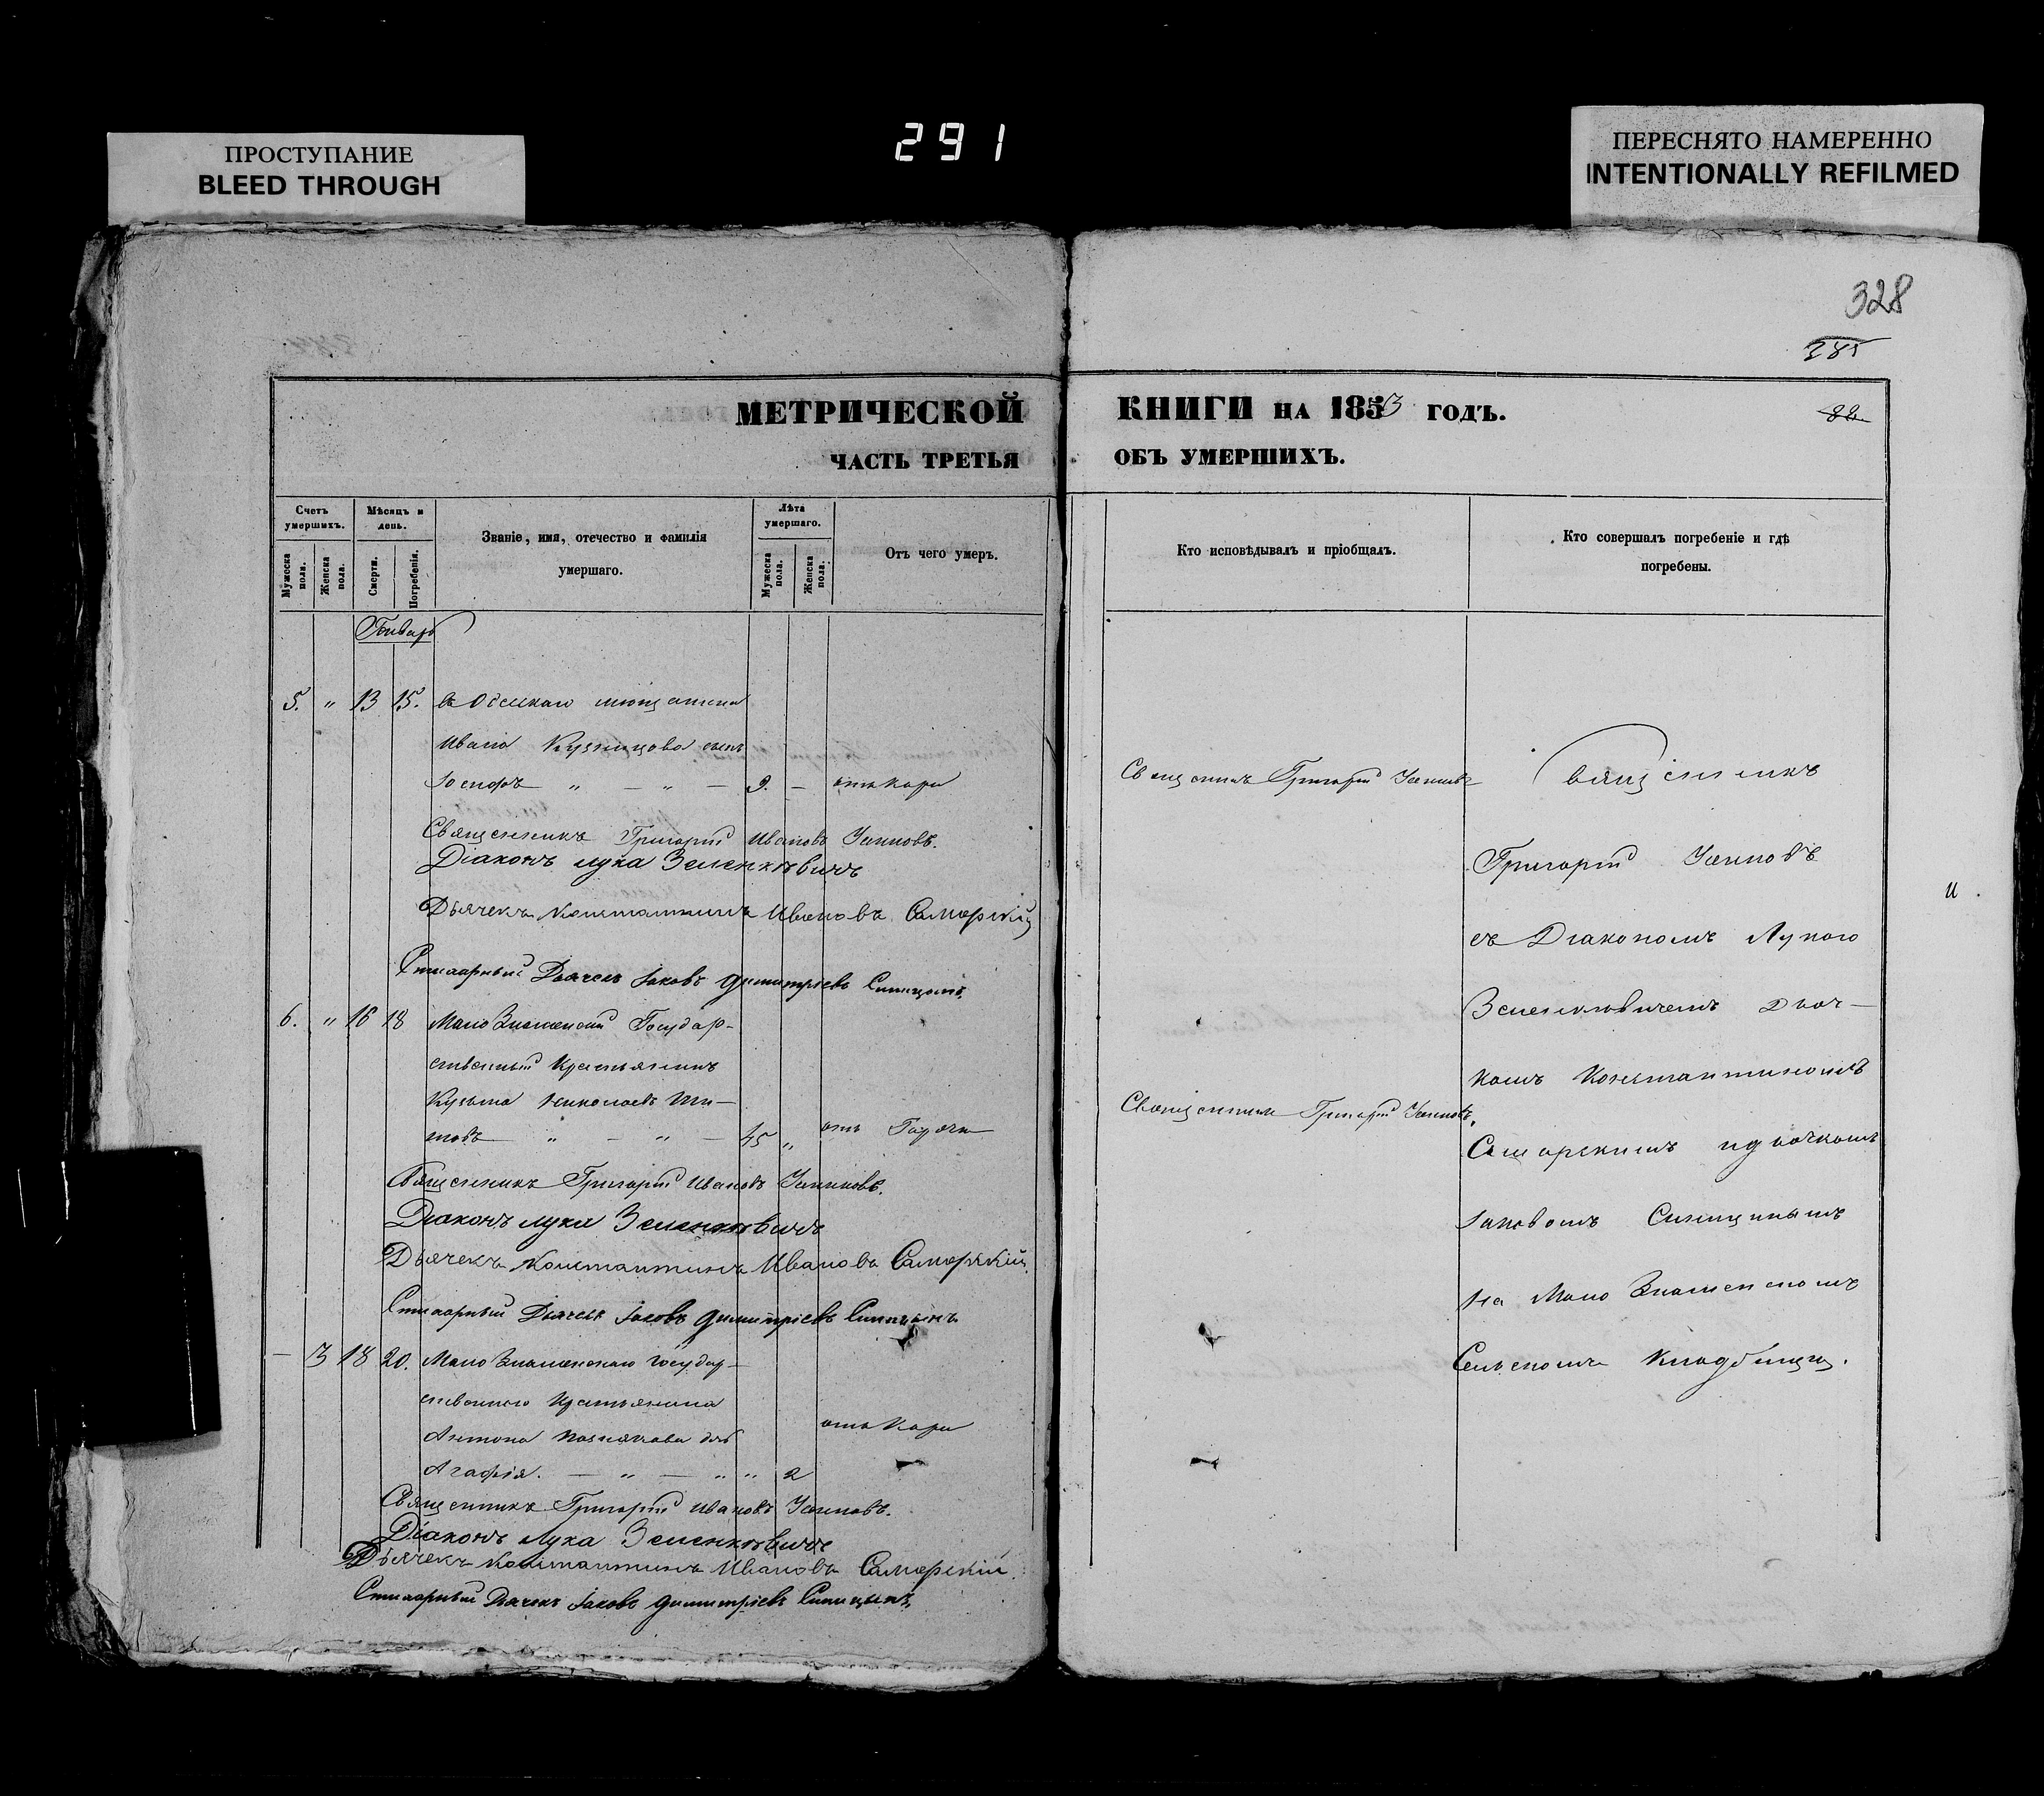 291
ПРОСТУПАНИЕ
BLEED THROUGH
ПЕРЕСНЯТО НАМЕРЕННО
INTENTIONALLY REFILMED
328
285
МЕТРИЧЕСКОЙ КНИГИ НА 1853 ГОДЪ.
88
ЧАСТЬ ТРЕТЬЯ ОБЪ УМЕРШИХЪ.
Счетъ умершихъ.
Мужеска пола.
Женска пола.
Мѣсяцъ и день.
Смерти.
Погребенія.
Званіе, имя, отечество и фамилія
умершаго.
Лѣта умершаго.
Мужеска пола.
Женска пола.
Отъ чего умеръ.
Кто исповѣдывалъ и пріобщалъ.
Кто совершалъ погребеніе и гдѣ
погребены.
Январь
5. " 13 15. Одескаго мѣщанина
Ивана Кузнецова сынъ
Іосифъ " — " — 9. — отъ кори
Священникъ Григорій Ивановъ
Діаконъ Лука Зеленкѣвичъ
Дьячекъ Константинъ Ивановъ Самарскій
Дьячекъ Іаковъ Димитріевъ Синицынъ
6. " 16 18 Мало Знаменскій Государ-
ственный Крестьянинъ
Кузьма Николаевъ Ти-
товъ " — " — 45 " отъ Горячки
Священникъ Григорій Ивановъ
Діаконъ Лука Зеленкѣвичъ
Дьячекъ Константинъ Ивановъ Самарскій
Дьячекъ Іаковъ Димитріевъ Синицынъ
— 3 18 20. Мало Знаменскаго Государ-
ственнаго Крестьянина
Антона дочь
Агафія. — " — " " 2 отъ кори
Священникъ Григорій Ивановъ
Діаконъ Лука Зеленкѣвичъ
Дьячекъ Константинъ Ивановъ Самарскій
Дьячекъ Іаковъ Димитріевъ Синицынъ
Священникъ Григорій
Священникъ Григорій
Священникъ
Григорій
съ Діакономъ Лукою
Зеленкѣвичемъ Дьяч-
комъ Константиномъ
Самарскимъ и дьячкомъ
Іаковомъ Синицынымъ
На Мало Знаменскомъ
Сельскомъ Кладбищѣ.
и